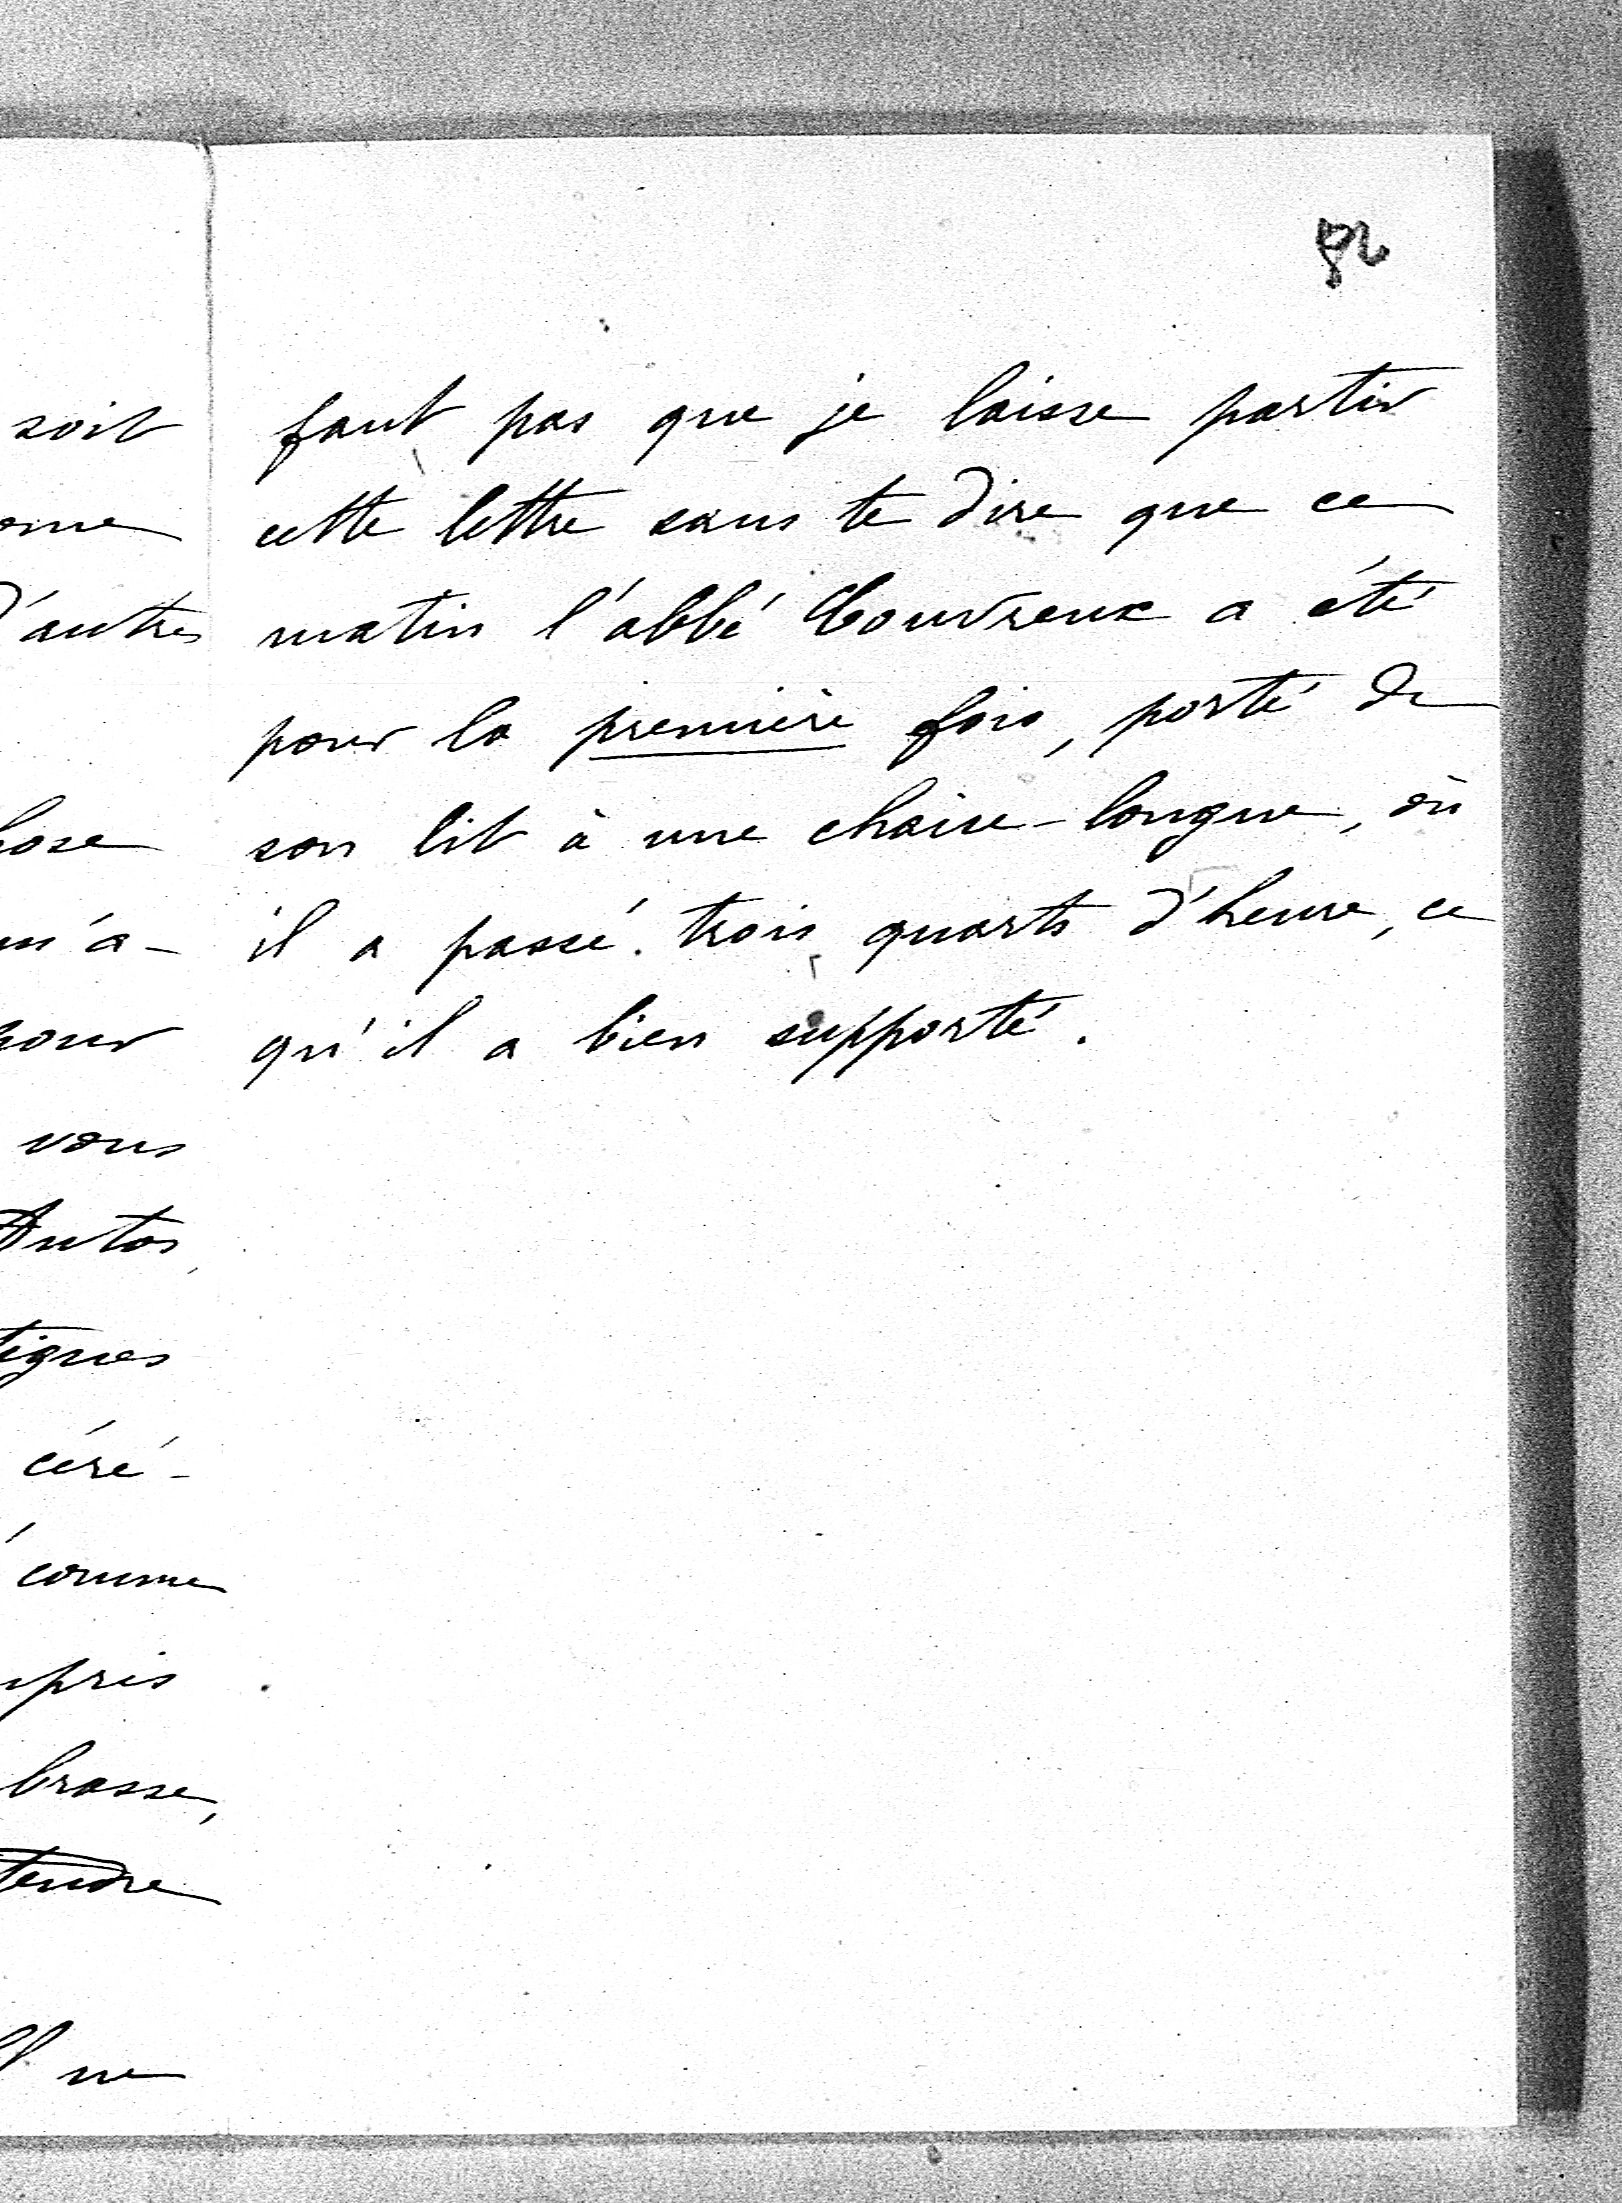 soit
d'autres
pour
vous
Autos,
céré-
comme
brasse,
tendre
Il ne
faut pas que je laisse partir
cette lettre sans te dire que ce
matin l'abbé Couvreux a été
pour la première fois, porté de
son lit à une chaise-longue, où
il a passé trois quarts d'heure, ce
qu'il a bien supporté.